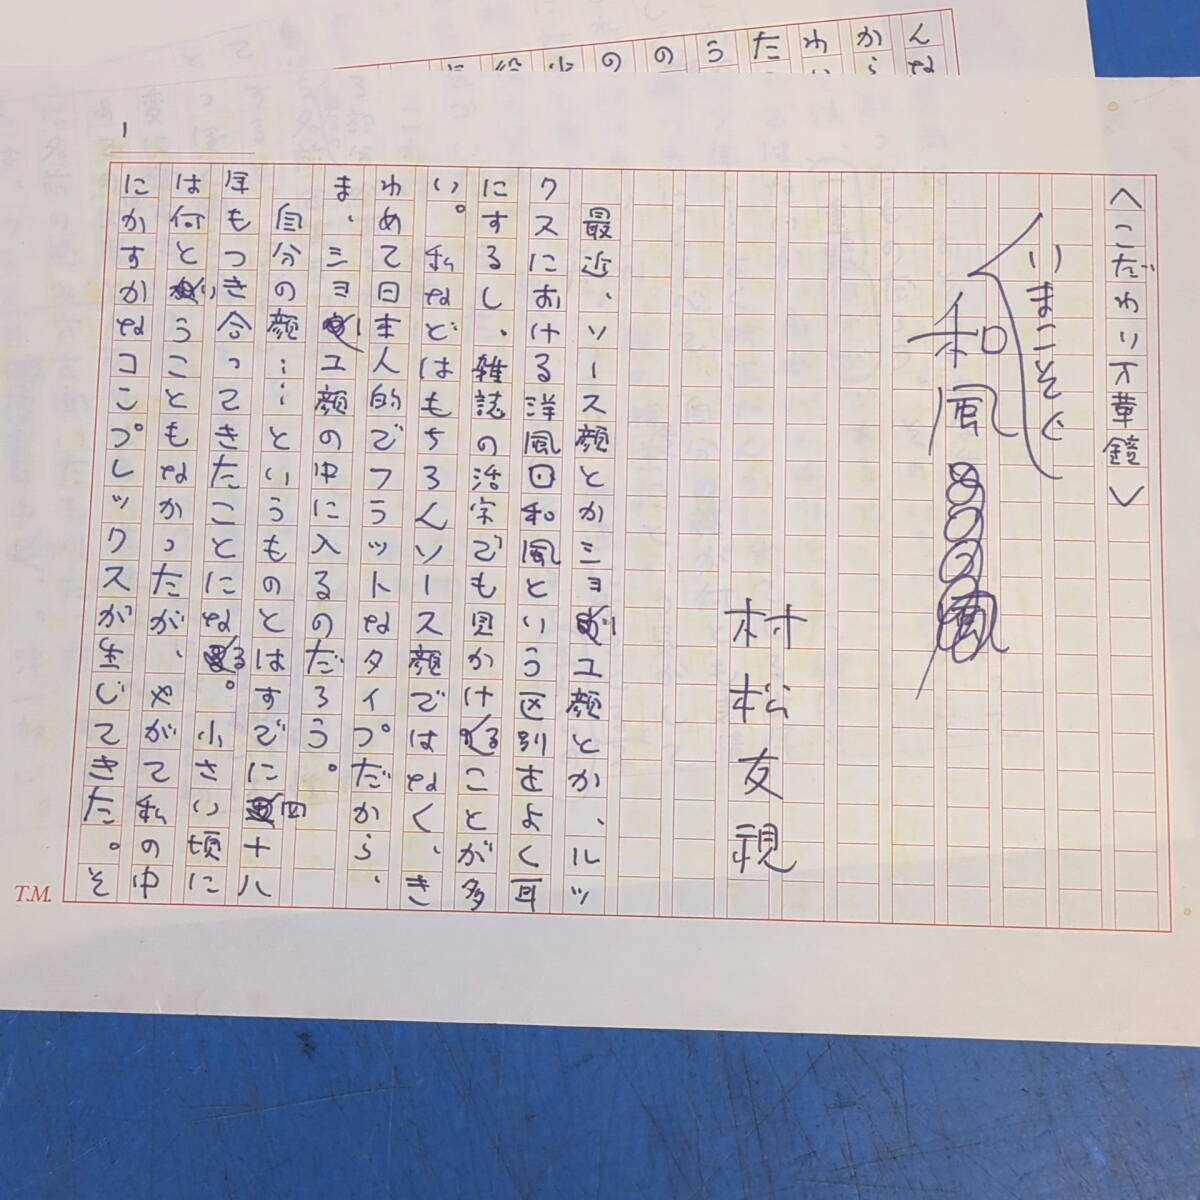 〈こだわり万華鏡〉
いまこそぐ
和風
村松友視
最近、ソース顔とかショーユ顔とか、ルッ
クスにおける洋風日和風という区別をよく耳
にするし、雑誌の活字でも見かけることが多
い。私などはもちろんソース顔ではなく、き
わめて日本人的でフラットなタイプだから、
ま、ショーユ顔の中に入るのだろう。
自分の顔……というものとはすでに四十八
年もつき合ってきたことになる。小さい頃に
は何ということもなかったが、やがて私の中
にかすかなコンプレックスが生じてきた。そ
1
T.M.
んな
から
わ
た
う
の
の